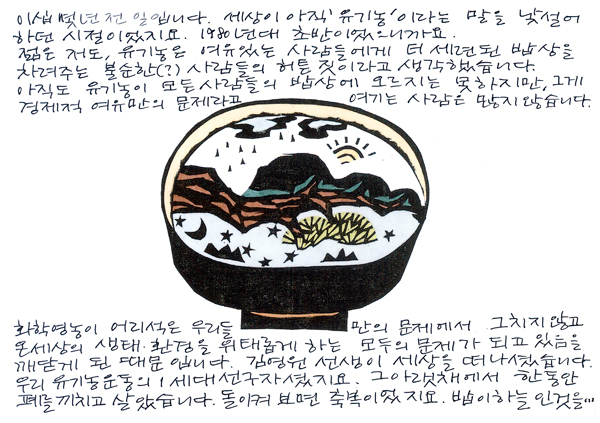 이십 몇년 전 일입니다. 세상이 아직 '유기농'이라는 말을 낯설어
하던 시절이었지요. 1980년대 초반이었으니까요.
젊은 저도, 유기농은 여유있는 사람들에게 더 세련된 밥상을
차려주는 불순한(?) 사람들의 허튼 짓이라고 생각했습니다.
아직도 유기농이 모든 사람들의 밥상에 오르지는 못하지만, 그게
경제적 여유만의 문제라고 여기는 사람은 많지 않습니다.
화학영농이 어리석은 우리들 만의 문제에서 그치지 않고
온세상의 생태·환경을 위태롭게 하는 모두의 문제가 되고 있음을
깨닫게 된 때문입니다. 김영원 선생이 세상을 떠나셨습니다.
우리 유기농운동의 1세대 선구자셨지요. 그 아랫채에서 한동안
폐를 끼치고 살았습니다. 돌이켜 보면 축복이었지요. 밥이 하늘인 것을...